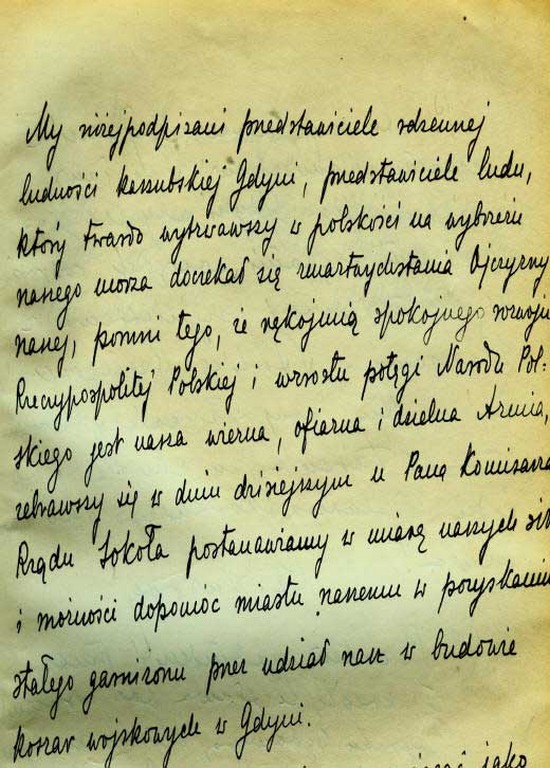 My niżejpodpisani przedstawiciele rdzennej
ludności kaszubskiej Gdyni, przedstawiciele ludu,
który twardo wytrwawszy w polskości na wybrzeżu
naszego morza doczekał się zmartwychstania Ojczyzny
naszej, pomni tego, że rękojmią spokojnego rozwoju
Rzeczypospolitej Polskiej i wzrostu potęgi Narodu Pol-
skiego jest nasza wierna, ofiarna i dzielna Armia,
zebrawszy się w dniu dzisiejszym u Pana Komisarza
Rządu Sokoła postanawiamy w miarę naszych sił
i możności dopomóc miastu naszemu w pozyskaniu
stałego garnizonu przez udział nasz w budowie
koszar wojskowych w Gdyni.
jako